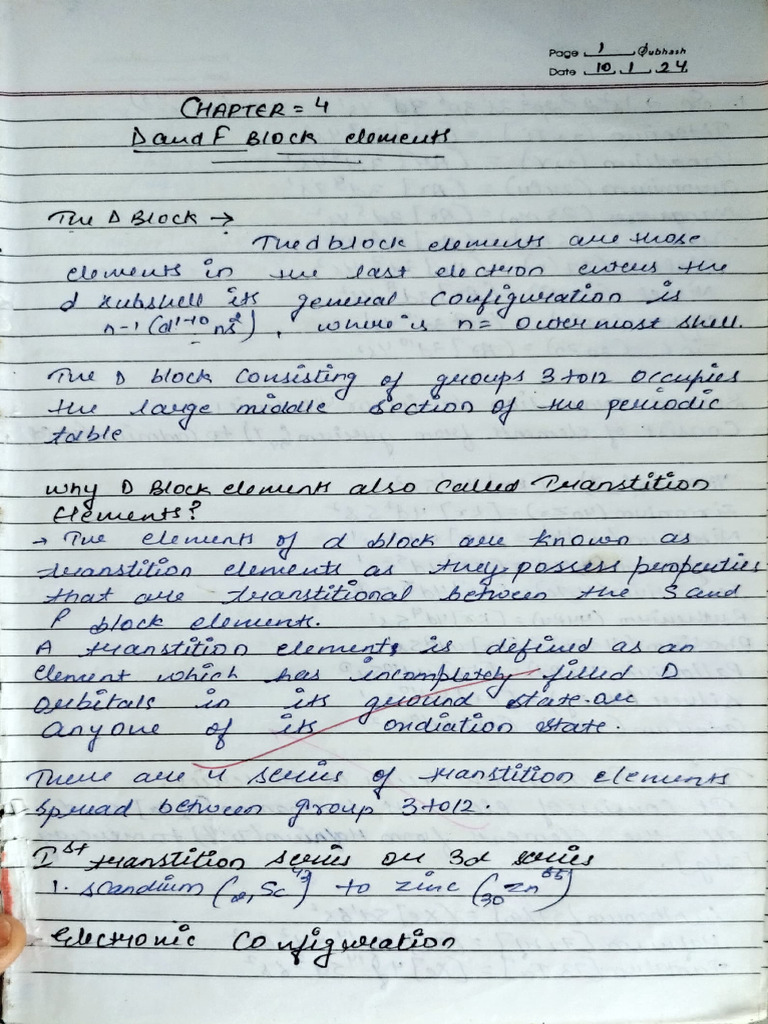 Page 1 Subhash
Date 10 1 24
CHAPTER = 4
D and F Block elements
The D Block →
The d block elements are those
elements in the last electron enters the
d subshell its general configuration is
n-1 (d¹⁻¹⁰ ns²), where is n = outermost shell.
The D block consisting of groups 3 to 12 occupies
the large middle section of the periodic
table
Why D Block elements also called Transtition
Elements?
→ The elements of d block are known as
transtition elements as they possess properties
that are transtitional between the S and
P block elements.
A transtition elements is defined as an
element which has incompletely filled D
orbitals in its ground state or
anyone of its oxidiation state.
There are 4 series of transtition elements
spread between group 3 to 12.
Iˢᵗ transtition series or 3d series
1. Scandium (₂₁Sc⁴³) to zinc (₃₀Zn⁶⁵)
Electronic Configuration